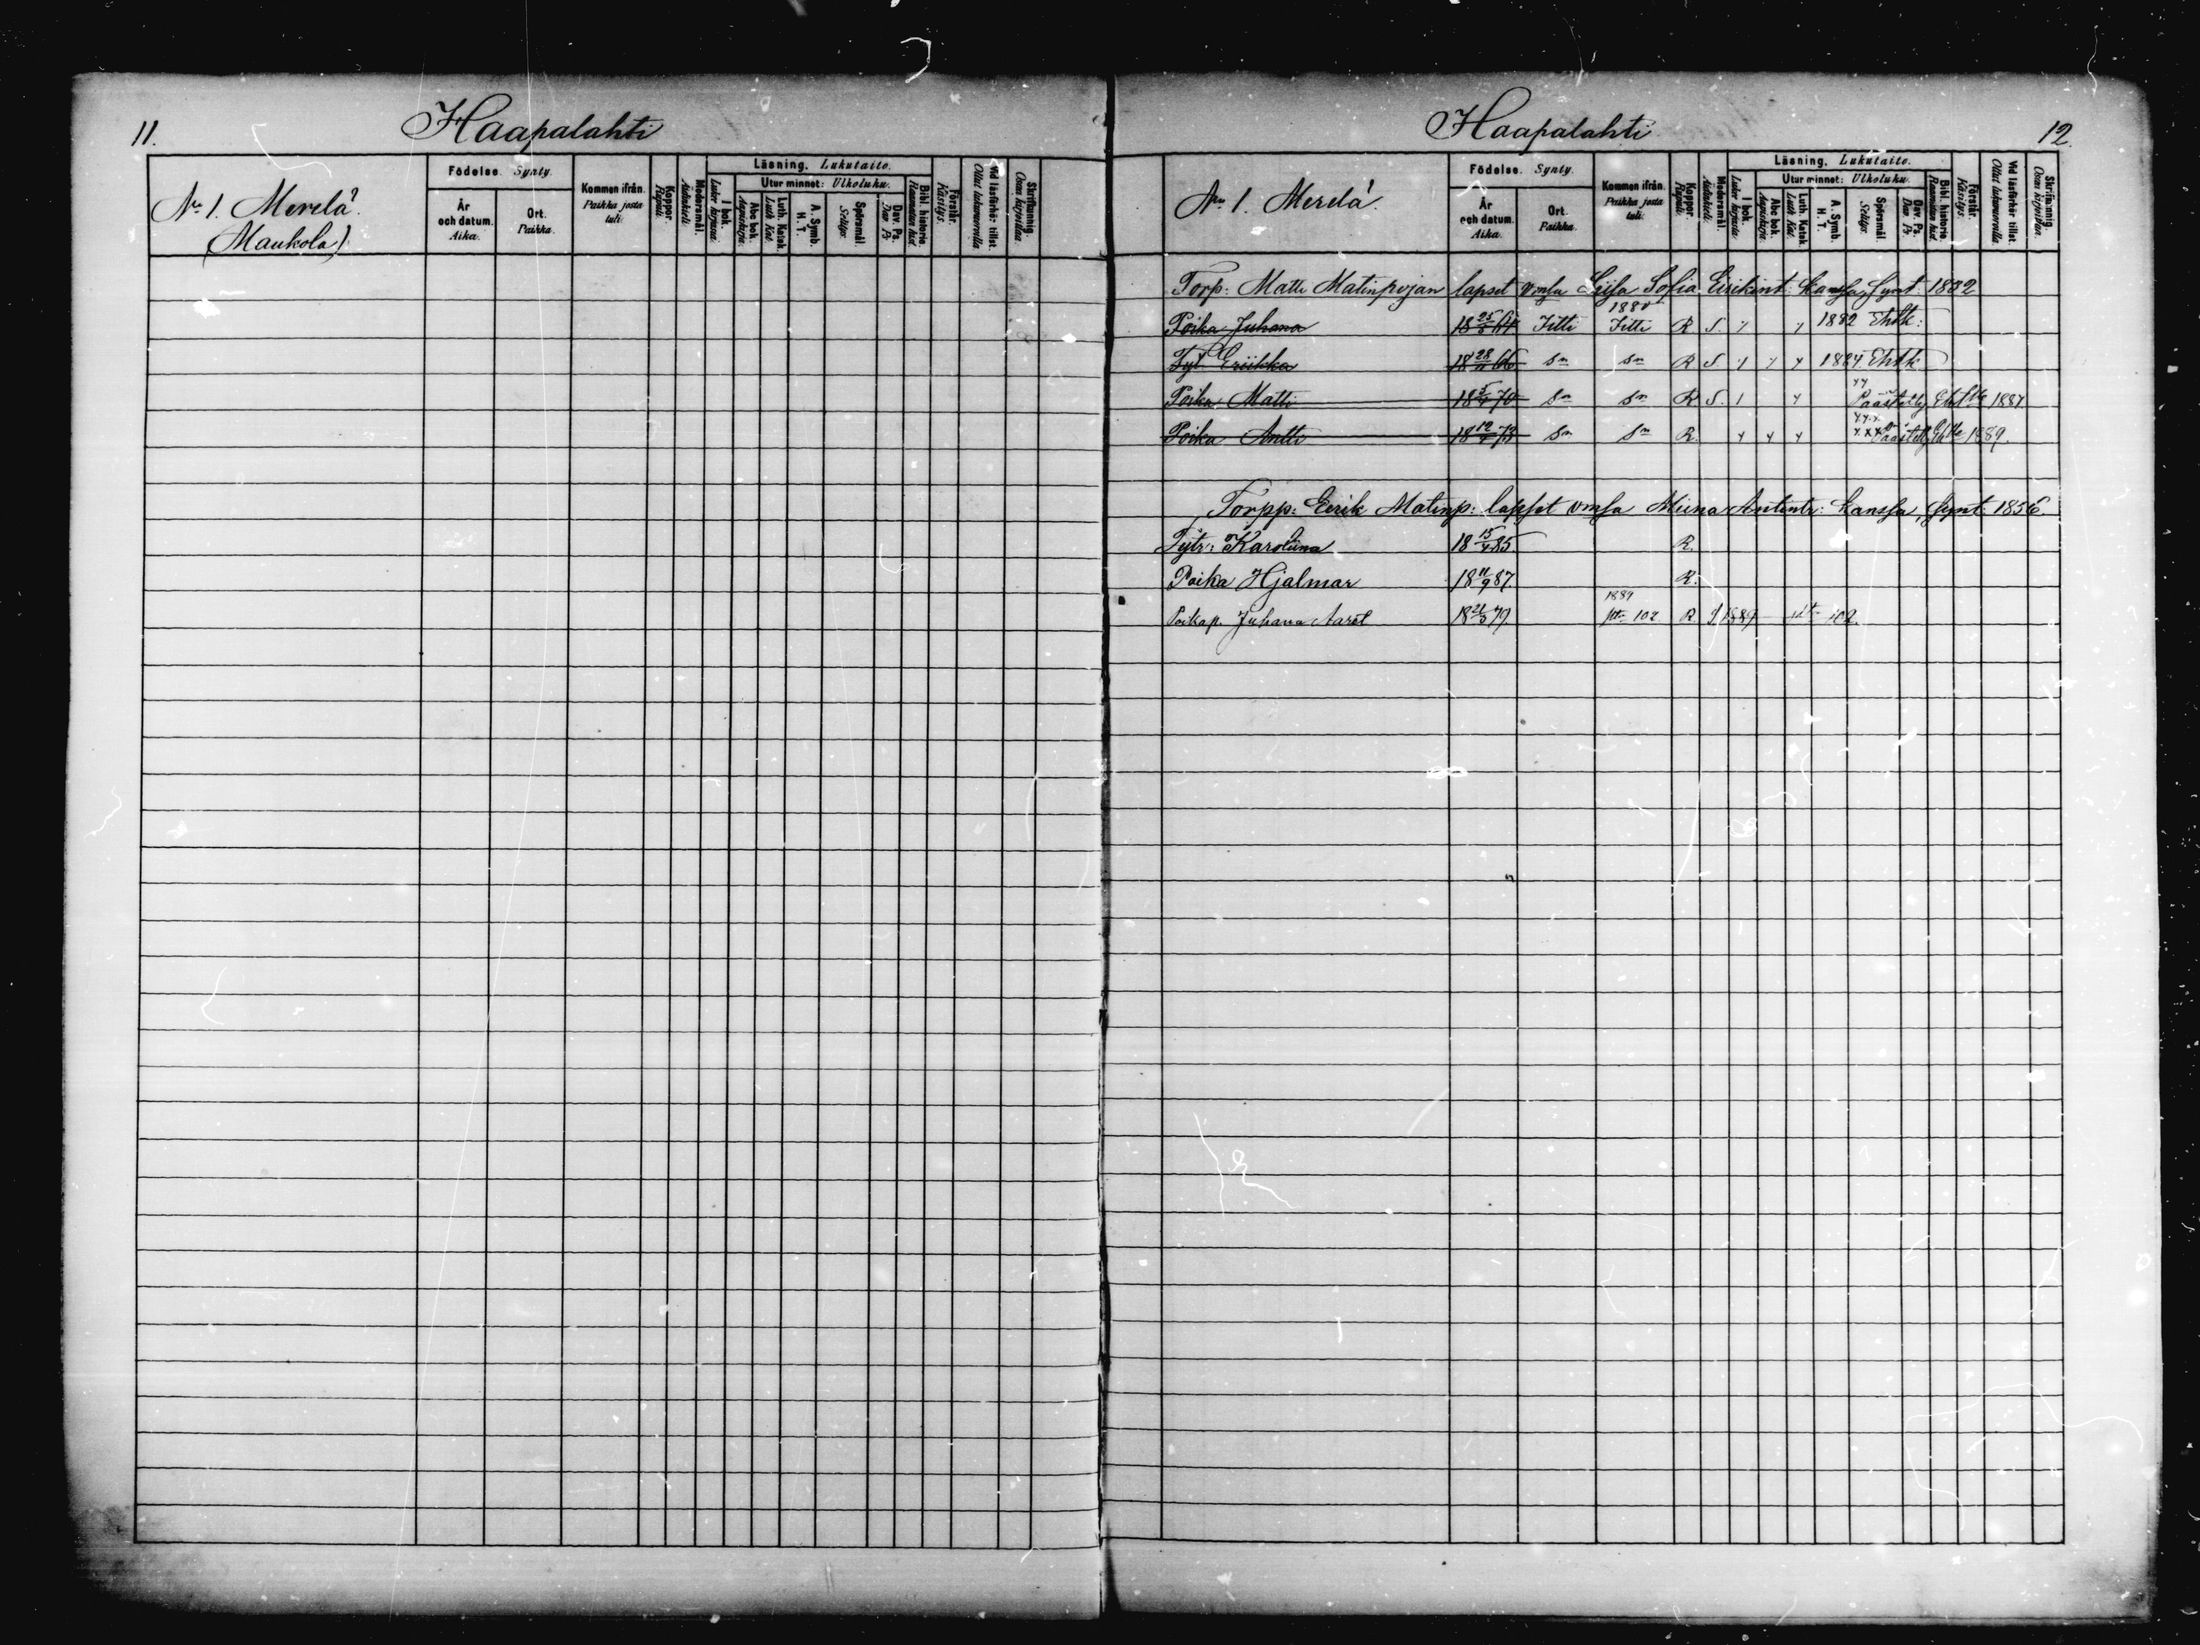 11.
Haapalahti
No 1. Merelä.
(Maukola)
Födelse. Synty.
År och datum. Aika.
Ort. Paikka.
Kommen ifrån. Paikka josta tuli:
Koppor. Rupuli.
Modersmål. Äidinkieli.
Läsning. Lukutaito.
I bok. Lukee kirjassa.
Utur minnet: Ulkoluku.
Abc bok. Aapiskirja.
Luth. Katek. Luth. Kat.
A. Symb. H. T.
Spörsmål. Selitys.
Dav. Ps. Dav. Ps.
Bibl. historie. Raamatun hist.
Förstår. Käsitys.
Vid läsförhör tillst. Ollut lukuvuorolla
Skrifkunnig. Osaa kirjoittaa.
Haapalahti
12.
No 1. Merelä.
Födelse. Synty.
År och datum. Aika.
Ort. Paikka.
Kommen ifrån. Paikka josta tuli:
Koppor. Rupuli.
Modersmål. Äidinkieli.
Läsning. Lukutaito.
I bok. Lukee kirjassa.
Utur minnet: Ulkoluku.
Abc bok. Aapiskirja.
Luth. Katek. Luth. Kat.
A. Symb. H. T.
Spörsmål. Selitys.
Dav. Ps. Dav. Ps.
Bibl. historie. Raamatun hist.
Förstår. Käsitys.
Vid läsförhör tillst. Ollut lukuvuorolla
Skrifkunnig. Osaa kirjoittaa.
Torp: Matti Matinpojan lapset vmsa Liisa Sofia Eirikint: kanssa, synt: 1832
Poika Juhana 18 25/5 64 Iitti 1880 Iitti R S. 1882 Ehtk:
Tyt Eriikka 18 28/11 66 sn sn R S. 1884 Ehtk
Poika Matti 18 5/4 70 sn sn R S. Päästetty Ehtlle 1887
Poika Antti 18 12/4 73 sn sn R. Päästetty Ehtlle 1889.
Torpp: Eerik Matinp: lapset vmsa Miina Antintr: kanssa, synt: 1856.
Tytr: Karoliina 18 15/4 85. R.
Poika Hjalmar 18 11/9 87. R.
Poikap. Juhana Aaret 18 21/5 79. 1889 102 R. 1889 102.